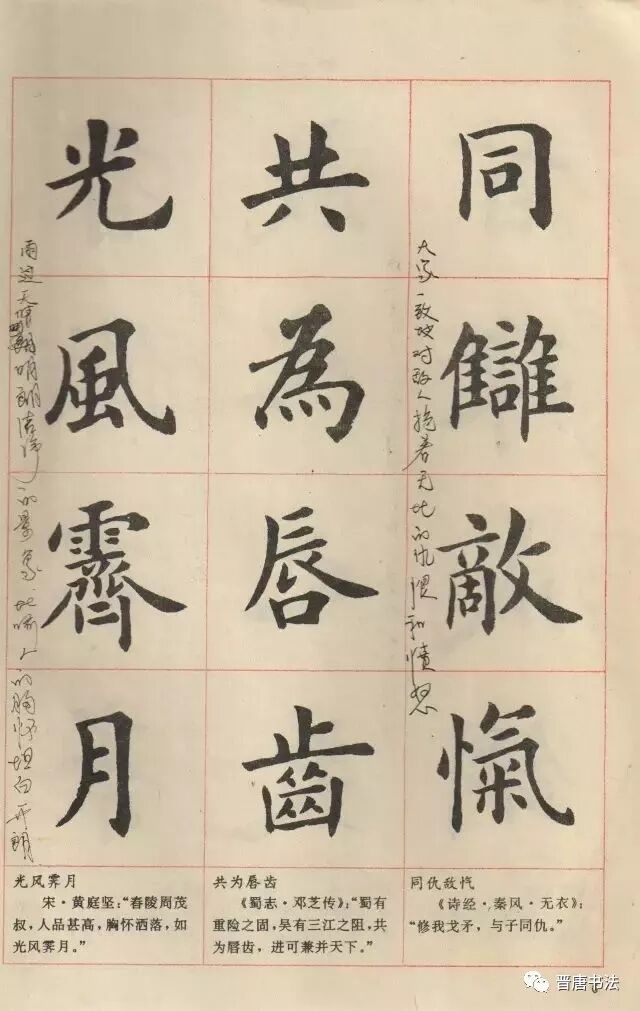 同讎敵愾
大家一致地对敌人抱着无比的仇恨和愤怒
共為唇齒
光風霽月
雨过天晴明朗清净的景象,比喻人的胸怀坦白开朗
同仇敌忾
《诗经·秦风·无衣》:
“修我戈矛,与子同仇。”
共为唇齿
《蜀志·邓芝传》:“蜀有
重险之固,吴有三江之阻,共
为唇齿,进可兼并天下。”
光风霁月
宋·黄庭坚:“舂陵周茂
叔,人品甚高,胸怀洒落,如
光风霁月。”
晋唐书法